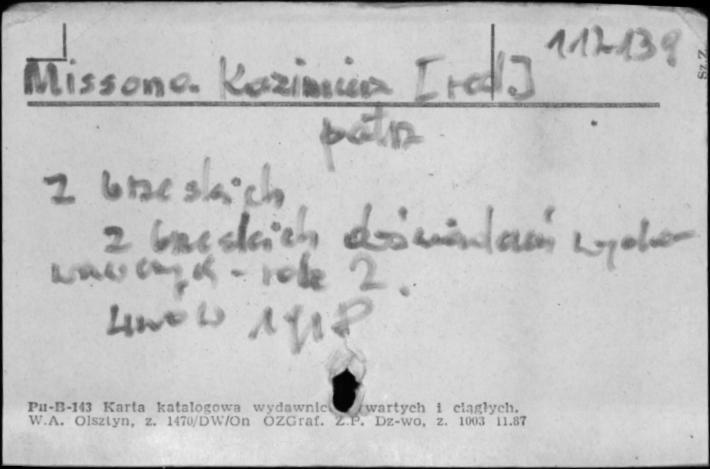 112139
Missona Kazimierz [red.]
patrz
Z brzeskich
Z brzeskich doświadczeń wycho-
wawczych - rok 2.
Lwów 1918
Pu-B-143 Karta katalogowa wydawnic wartych i ciągłych.
W.A. Olsztyn, z. 1470/DW/On OZGraf. Z.P. Dz-wo, z. 1003 11.87
Sz. Z.